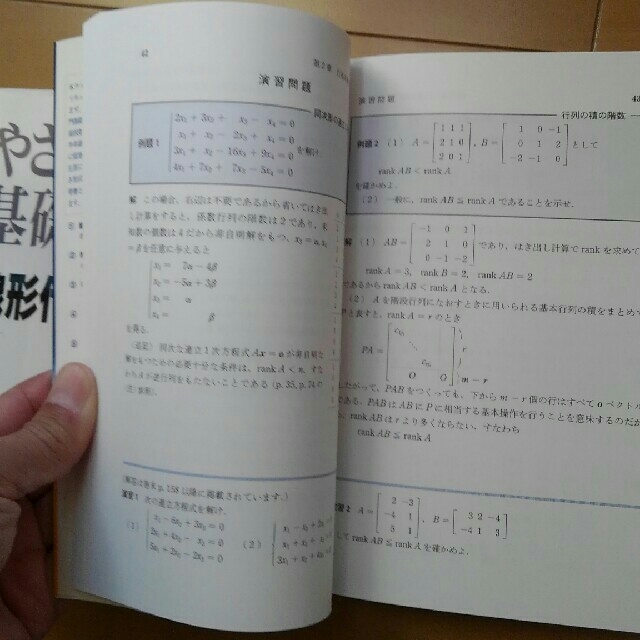 やさ
基礎
線形代
42
第2章
演習問題
同次形の連
例題1
2x₁+3x₂+ x₃- x₄=0
x₁+ x₂- 2x₃+ x₄=0
3x₁+ x₂-16x₃+9x₄=0 を解け.
4x₁+7x₂+ 7x₃-5x₄=0
解 この場合,右辺は不要であるから省いてはき出
し計算をすると,係数行列の階数は2であり,未
知数の個数は4だから非自明解をもつ.x₃=α, x₄
=βを任意に与えると
x₁= 7α-4β
x₂=-5α+3β
x₃= α
x₄= β
を得る.
(追記) 同次な連立1次方程式 Ax=o が非自明な
解をもつための必要十分な条件は,rank A<n, すな
わち A が逆行列をもたないことである (p.35, p.24の
注)参照).
解答は巻末p.158以降に掲載されています.)
演習1 次の連立方程式を解け.
(1)
x₁-6x₂+3x₃=0
2x₁+4x₂- x₃=0
5x₁+2x₂-2x₃=0
(2)
演習問題
43
行列の積の階数
例題2 (1) A=
1 1 1
2 1 0
2 0 1
, B=
1 0 -1
0 1 2
-2 -1 0
として
rank AB<rank A
を確かめよ.
(2) 一般に,rank AB≦rank A であることを示せ.
解 (1) AB=
-1 0 1
2 1 0
0 -1 -2
であり,はき出し計算で rank を求めて
rank A=3, rank B=2, rank AB=2
であるから rank AB<rank A となる.
(2) A を階段行列になおすときに用いられる基本行列の積をまとめて
と表すと,rank A=r のとき
PA=
O O
r
m-r
したがって,PAB をつくっても,下から m-r 個の行はすべて o ベクトル
である.PAB は AB に P に相当する基本操作を行うことを意味するのだか
ら,rank AB は r より多くならない.すなわち
rank AB≦rank A
演習2 A=
2 -3
-4 1
5 1
, B=
3 2 -4
-4 1 3
して rank AB≦rank A を確かめよ.